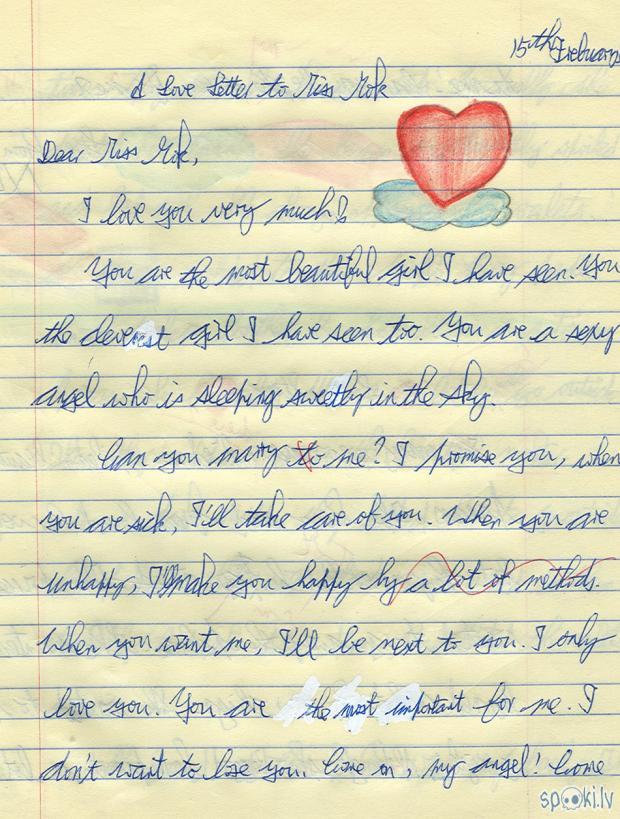 15th February
A Love Letter to Miss Mok
Dear Miss Mok,
I love you very much!
You are the most beautiful girl I have seen. You
the cleverest girl I have seen too. You are a sexy
angel who is sleeping sweetly in the sky.
Can you marry to me? I promise you, when
you are sick, I'll take care of you. When you are
unhappy, I'll make you happy by a lot of methods.
When you want me, I'll be next to you. I only
love you. You are the most important for me. I
don't want to lose you. Come on, my angel! Come
spoki.lv